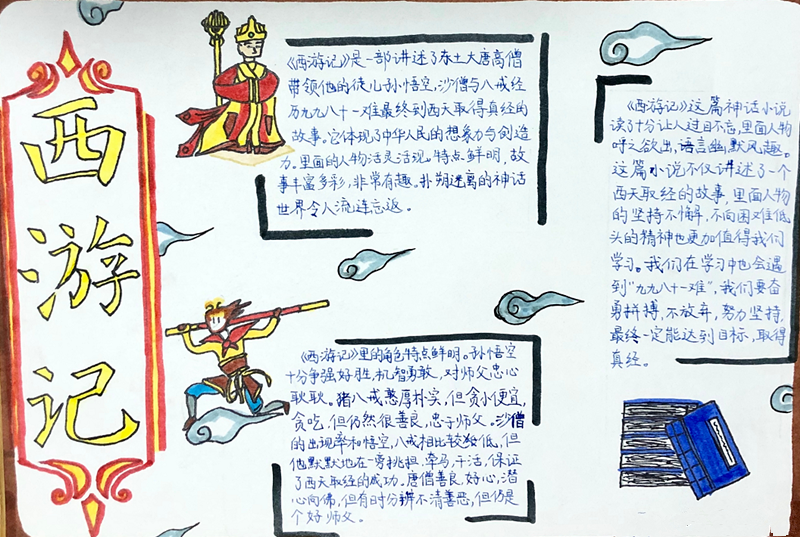 西游记
《西游记》是一部讲述了东土大唐高僧
带领他的徒儿孙悟空,沙僧与八戒经
历九九八十一难最终到西天取得真经的
故事。它体现了中华人民的想象力与创造
力。里面的人物活灵活现。特点鲜明,故
事丰富多彩,非常有趣。扑朔迷离的神话
世界令人流连忘返。
《西游记》里的角色特点鲜明。孙悟空
十分争强好胜,机智勇敢,对师父忠心
耿耿。猪八戒憨厚朴实,但贪小便宜,
贪吃,但仍然很善良,忠于师父。沙僧
的出现率和悟空,八戒相比较给低,但
他默默地在一旁挑担,牵马,干活,保证
了西天取经的成功。唐僧善良,好心,潜
心向佛,但有时分辨不清善恶,但仍是
个好师父。
《西游记》这篇神话小说
读了十分让人过目不忘,里面人物
呼之欲出,语言幽默风趣。
这篇小说不仅讲述了一个
西天取经的故事,里面人物
的坚持不懈,不向困难低
头的精神也更加值得我们
学习。我们在学习中也会遇
到“九九八十一难”,我们要奋
勇拼搏,不放弃,努力坚持,
最终一定能达到目标,取得
真经。